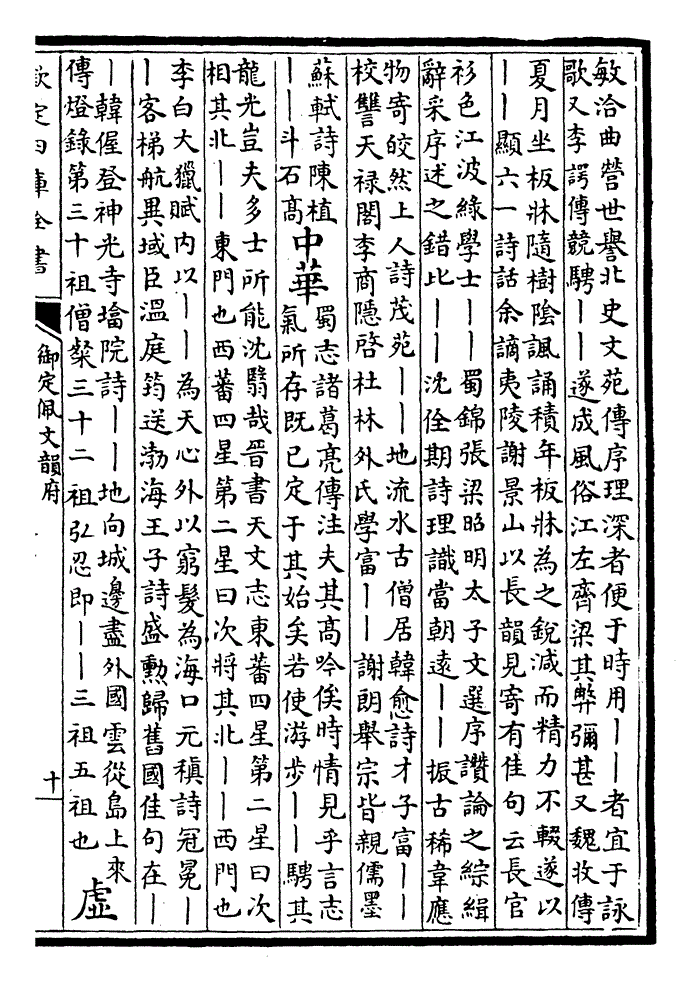 敏洽曲營世譽北史文苑傳序理深者便于時用丨丨者宜于詠
歌又李諤傳競騁丨丨遂成風俗江左齊梁其弊彌甚又魏收傳
夏月坐板牀隨樹陰諷誦積年板牀為之銳減而精力不輟遂以
丨丨顯六一詩話余謫夷陵謝景山以長韻見寄有佳句云長官
衫色江波綠學士丨丨蜀錦張梁昭明太子文選序讚論之綜緝
辭采序述之錯比丨丨沈佺期詩理識當朝遠丨丨振古稀韋應
物寄皎然上人詩茂苑丨丨地流水古僧居韓愈詩才子富丨丨
校讐天祿閣李商隱啓杜林外氏學富丨丨謝朗舉宗皆親儒墨
蘇軾詩陳植
丨丨斗石髙
中華
蜀志諸葛亮傳注夫其髙吟俟時情見乎言志
氣所存既已定于其始矣若使游步丨丨騁其
龍光豈夫多士所能沈翳哉晉書天文志東蕃四星第二星曰次
相其北丨丨東門也西蕃四星第二星曰次將其北丨丨西門也
李白大獵賦内以丨丨為天心外以窮髮為海口元稹詩冠冕丨
丨客梯航異域臣温庭筠送渤海王子詩盛勲歸舊國佳句在丨
丨韓偓登神光寺墖院詩丨丨地向城邊盡外國雲從島上來
傳燈錄第三十祖僧璨三十二祖弘忍即丨丨三祖五祖也
虛
欽定四庫全書
御定佩文韻府
十